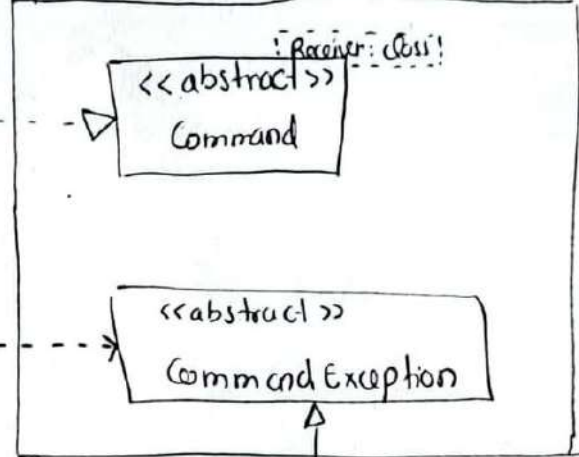 Receiver : class
<<abstract>>
Command
<<abstract>>
Command Exception